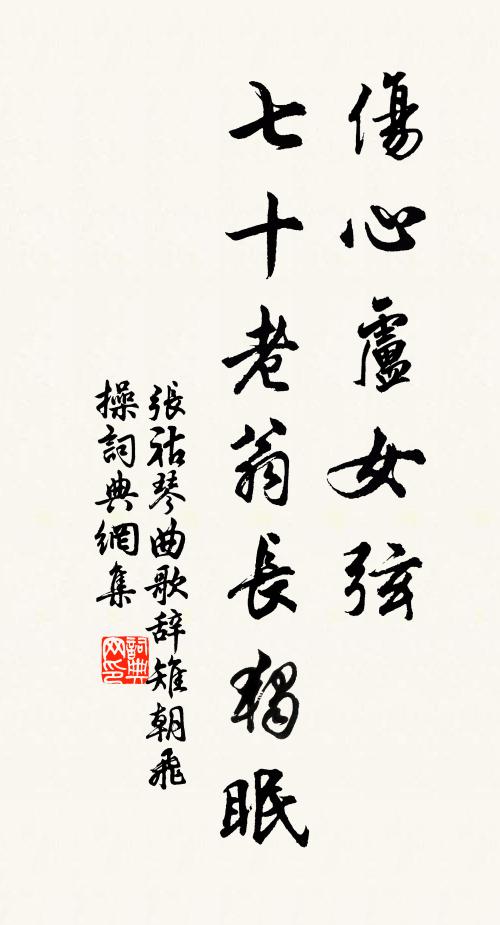 傷心盧女弦
七十老翁長獨眠
張祜琴曲歌辞雉朝飛
操詞典網集
詞典
网印